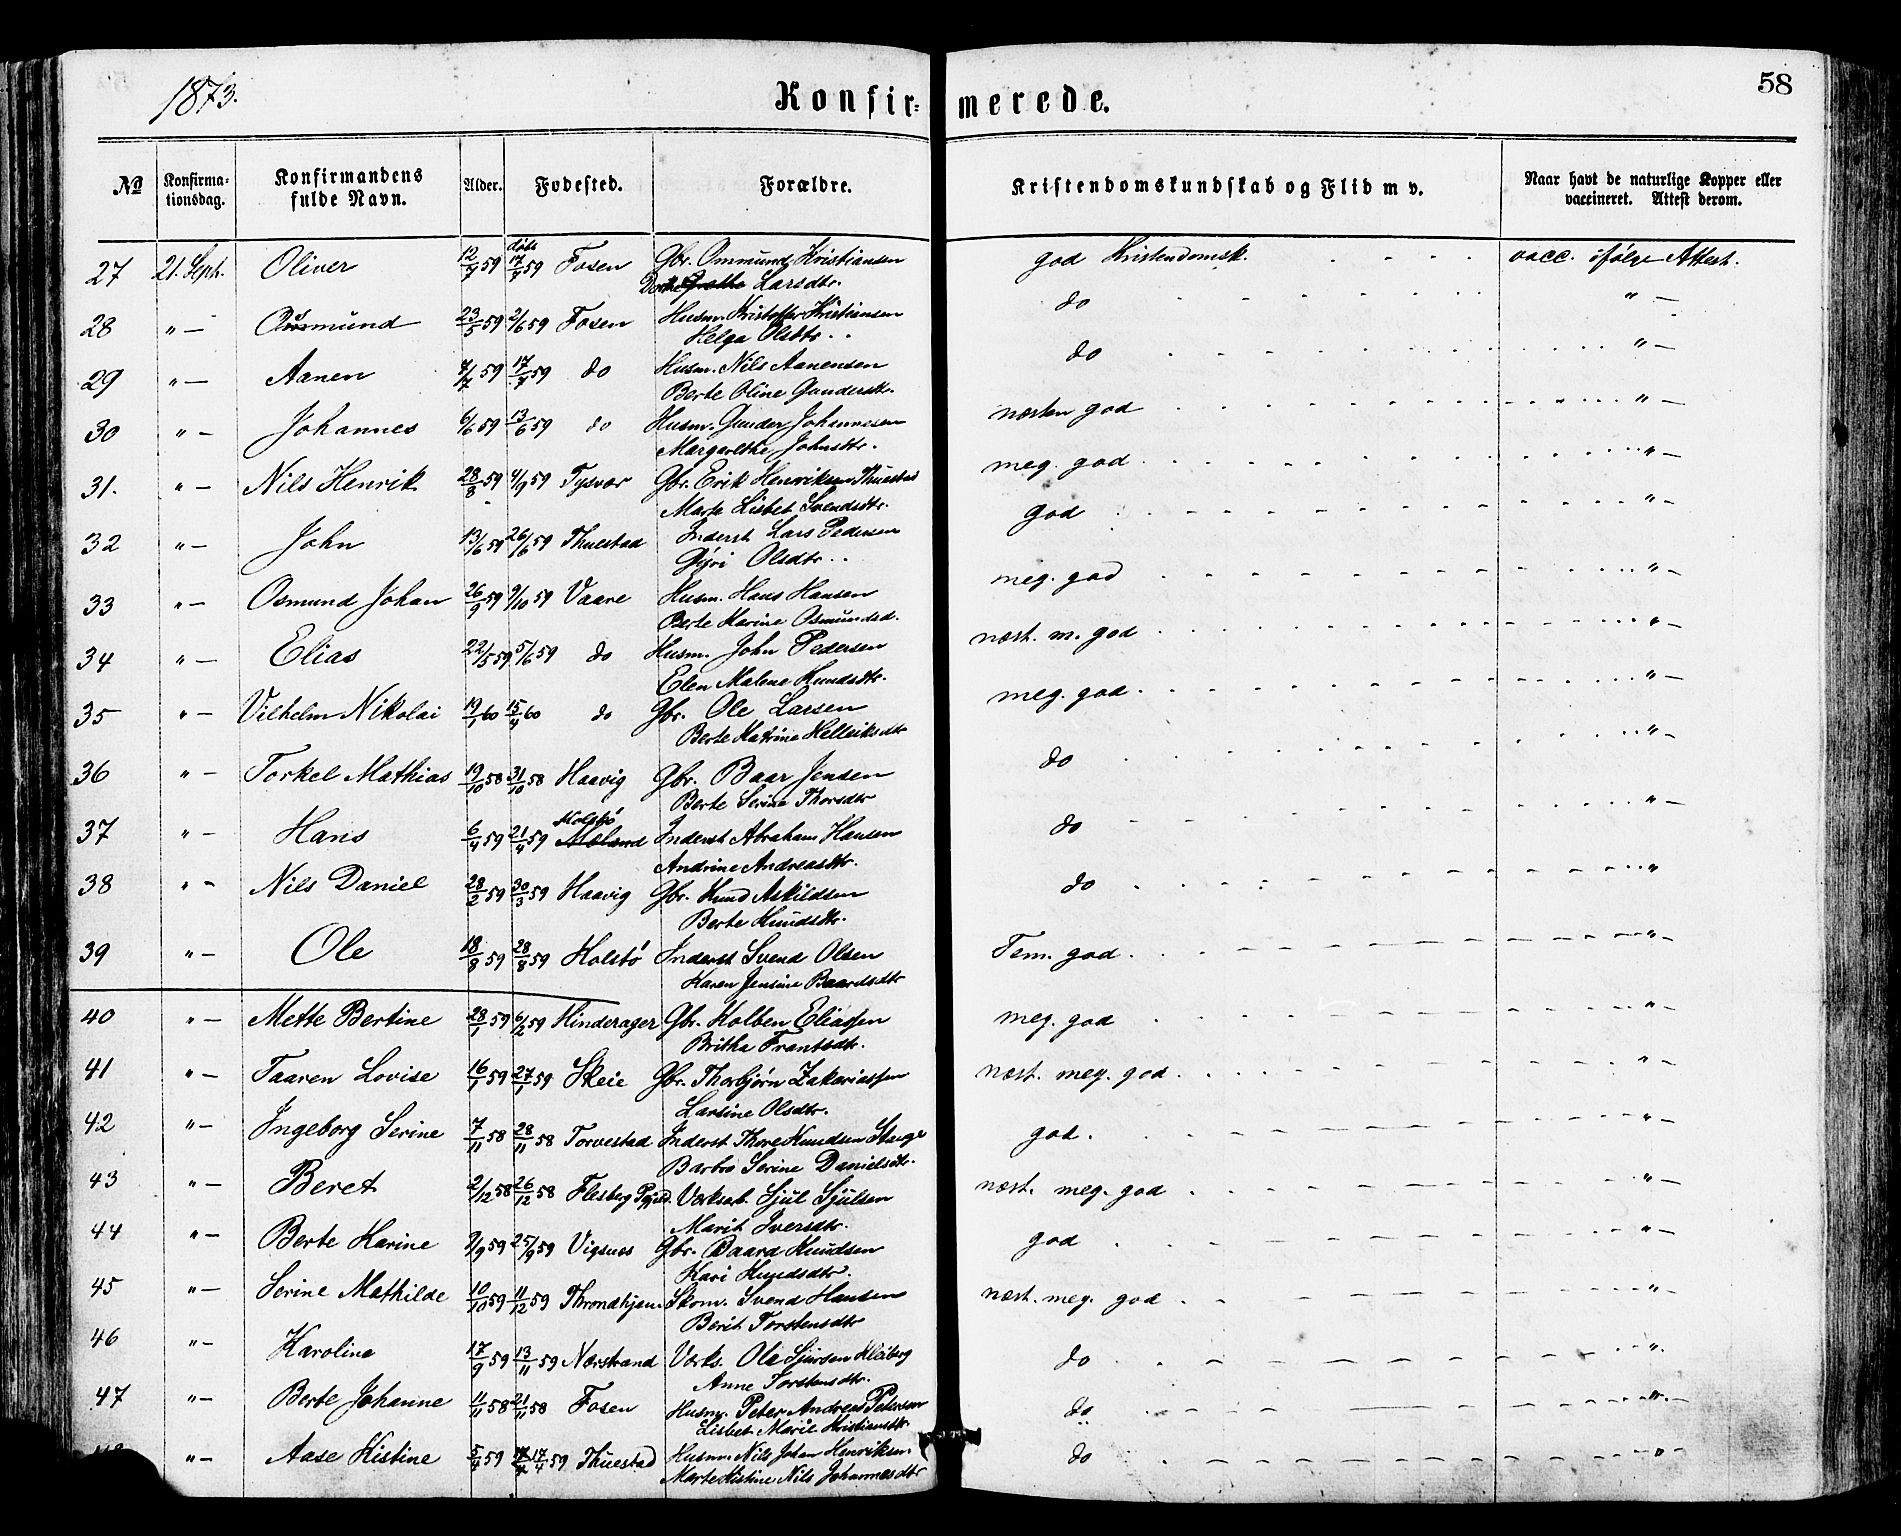 1873.
Konfir= merede.
58
№ Konfirma- tionsdag. Konfirmandens fulde Navn. Alder. Fodested. Forældre. Kristendomskundskab og Flid m v. Naar havt de naturlige Kopper eller vaccineret. Attest derom.
27 21. Sept. Oliver 12/7 59 døbt 17/7 59 Fosen Gbr. Ommund Kristiansen god Kristendomsk. vacc. ifølge Attest.
Larsdtr.
28 " — 23/5 59 2/6 59 Fosen Husm. Kristoffer Kristiansen do " —
Helga Olsdtr.
29 " — Aanen 7/7 59 17/7 59 do Husm. Nils Aanensen do " —
Berte Oline Gundersdtr.
30 " — Johannes 6/6 59 13/6 59 do Husm. Gunder Johannesen næsten god " —
Margarethe Johnsdtr.
31. " — Nils Henrik 28/8 59 4/9 59 Tysvær Gbr. Erik Henriksen Thuestad meg. god " —
Marta Lisbet Svendsdtr.
32 " — John 13/6 59 26/6 59 Thuestad Inderst Lars Pedersen god " —
Gyri Olsdtr.
33 " — Osmund Johan 26/9 59 9/10 59 Vaare Husm. Hans Hansen meg. god " —
Berte Karine Osmundsd.
34 " — Elias 22/5 59 5/6 59 do Husm. John Pedersen næst. m. god " —
Elen Malene Knudsdtr.
35 " — Vilhelm Nikolai 19/1 60 15/4 60 do Gbr. Ole Larsen meg. god " —
Berte Katrine Helliksdtr
36 " — Torkel Mathias 19/10 58 31/10 58 Haavig Gbr. Baar Jensen do " —
Berte Serine Thorsdtr
37 " — Hans 6/4 59 21/4 59 Holstø Inderst Abraham Hansen do " —
Andrine Andreasdtr.
38 " — Nils Daniel 28/2 59 30/3 59 Haavig Gbr. Knud Askildsen do "
Berte Knudsdtr.
39 " — Ole 18/8 59 28/8 59 Holstø Inderst Svend Olsen Tem. god " —
Karen Jensine Baardsdtr
40 " — Mette Bertine 28/1 59 6/2 59 Hinderager Gbr. Kolben Eliassen meg. god " —
Britha Frantsdtr.
41 " — Taaren Lovise 16/1 59 27/1 59 Skeie Gbr. Thorbjørn Zakariassen næst. meg. god " —
Larsine Olsdtr.
42 " — Ingeborg Serine 7/11 58 28/11 58 Torvestad Inderst Thore Knudsen god. " —
Barbro Serine Danielsdtr.
43 " — Beret 2/12 58 26/12 58 Flesberg Sjul Sjulsen næst. meg. god " —
Marit Iversdtr.
44 " — Berte Karine 9/9 59 25/9 59 Vigsnes Gbr. Baard Knudsen god " —
Kari Knudsdtr.
45 " — Serine Mathilde 10/10 59 11/12 59 Throndhjem Skom. Svend Hansen næst. meg. god " —
Berit Torstensdtr
46 " — Karoline 17/9 59 13/11 59 Nærstrand Verks. Ole Sjursen Kleiberg do "
Anne Torstensdtr.
47 " — Berte Johanne 11/11 58 21/11 58 Fosen Husm. Peter Andreas Petersen do " —
Lisbet Marie Kristiansdtr.
" — Aase Kistine 5/4 59 17/4 59 Thuestad Husm. Nils Johan Henriksen do "
Marte Kistine Nils Johannesdtr